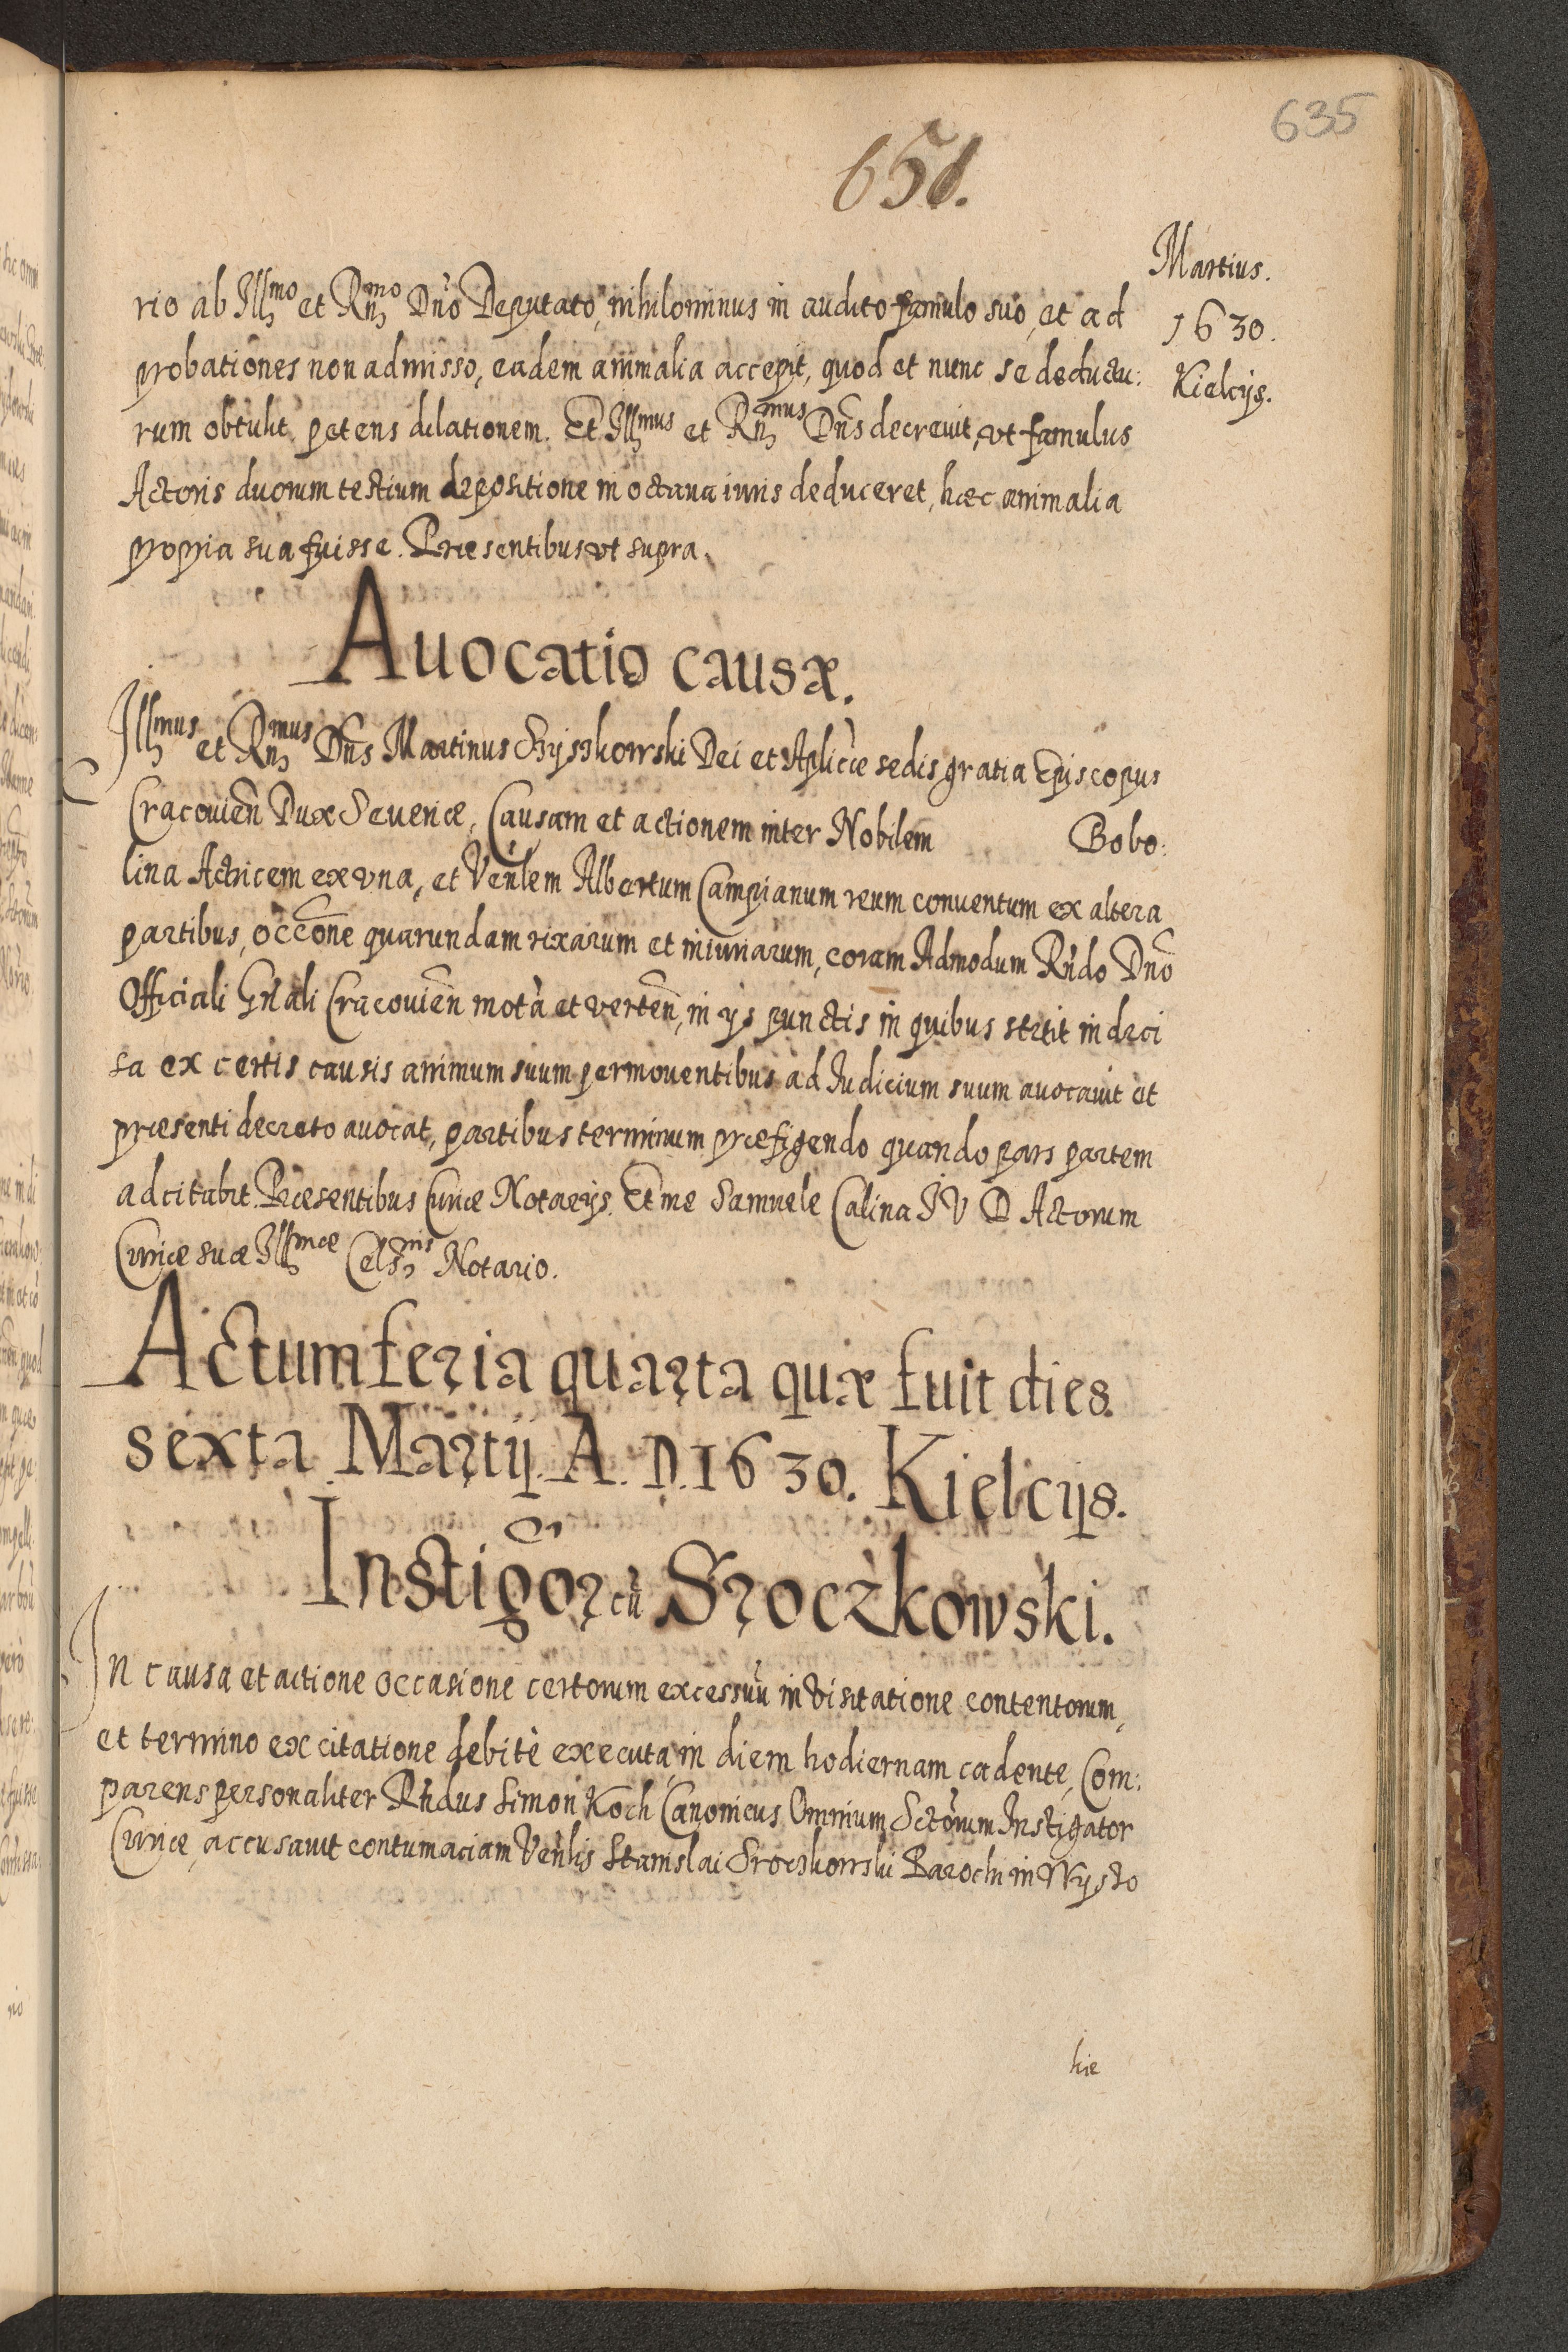 635
651.
Martius.
1630.
Kielcijs.
rio ab Illmo et Rndmo Dno Deputato, nihilominus in audito famulo suo, et ad
probationes non admisso, eadem animalia accepit, quod et nunc se deductu:
rum obtulit petens dilationem. Et Illmus et Rndmus Dns decreuit, vt famulus
Actoris duorum testium depositione in octaua iuris deduceret, hæc animalia
propria sua fuisse. Præsentibus vt supra.
Auocatio causæ.
Illmus et Rndmus Dns Martinus Szyszkowski Dei et Aplicæ sedis gratia Episcopus
Cracouien Dux Seueriæ, Causam et actionem inter Nobilem Bobo:
lina Actricem ex vna, et Venlem Albertum Campianum reum conuentum ex altera
partibus, occone quarundam rixarum et iniuriarum, coram Admodum Rndo Dno
Officiali Gnali Cracouien mota et verten, in ijs punctis in quibus stetit indeci
sa ex certis causis animum suum permouentibus ad Iudicium suum auocauit et
præsenti decreto auocat, partibus terminum præfigendo quando pars partem
adcitabit. Præsentibus Curiæ Notarijs. Et me Samuele Calina I V D Actorum
Curiæ suæ Illmæ Celsnis Notario.
Actum feria quarta quæ fuit dies
sexta Martij. A. D. 1630. Kielcijs.
Instigor cu Sroczkowski.
In causa et actione occasione certorum excessuu in visitatione contentorum,
et termino ex citatione debitè executa in diem hodiernam cadente, Com:
parens personaliter Rndus Simon Koch Canonicus Omnium Sctorum Instigator
Curiæ, accusauit contumaciam Venlis Stanislai Sroczkowski Parochi in Wyso
hie